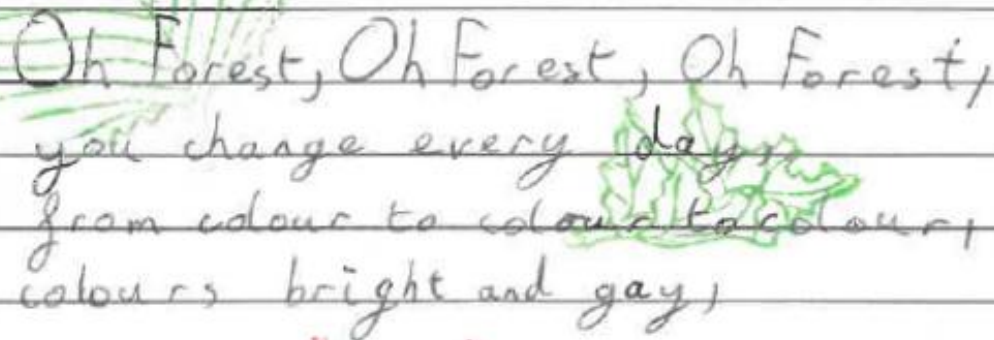 Oh Forest, Oh Forest, Oh Forest,
you change every day,
from colour to colour to colour,
colours bright and gay,